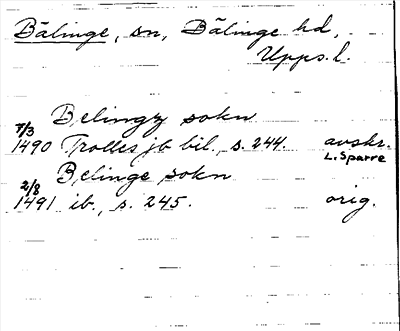 Bälinge, sn, Bälinge hd,
Upps. l.
Belingy sokn
7/3 1490 Trolles jb bil., s. 244. avskr.
L. Sparre
Belinge sokn
2/8 1491 ib., s. 245. orig.